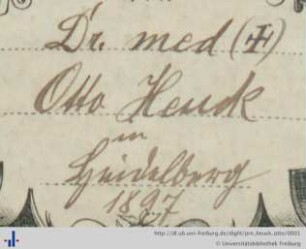 Dr. med (+)
Otto Heuck
in
Heidelberg
1897
http://dl.ub.uni-freiburg.de/diglit/pm_heuck_otto/0001
© Universitätsbibliothek Freiburg